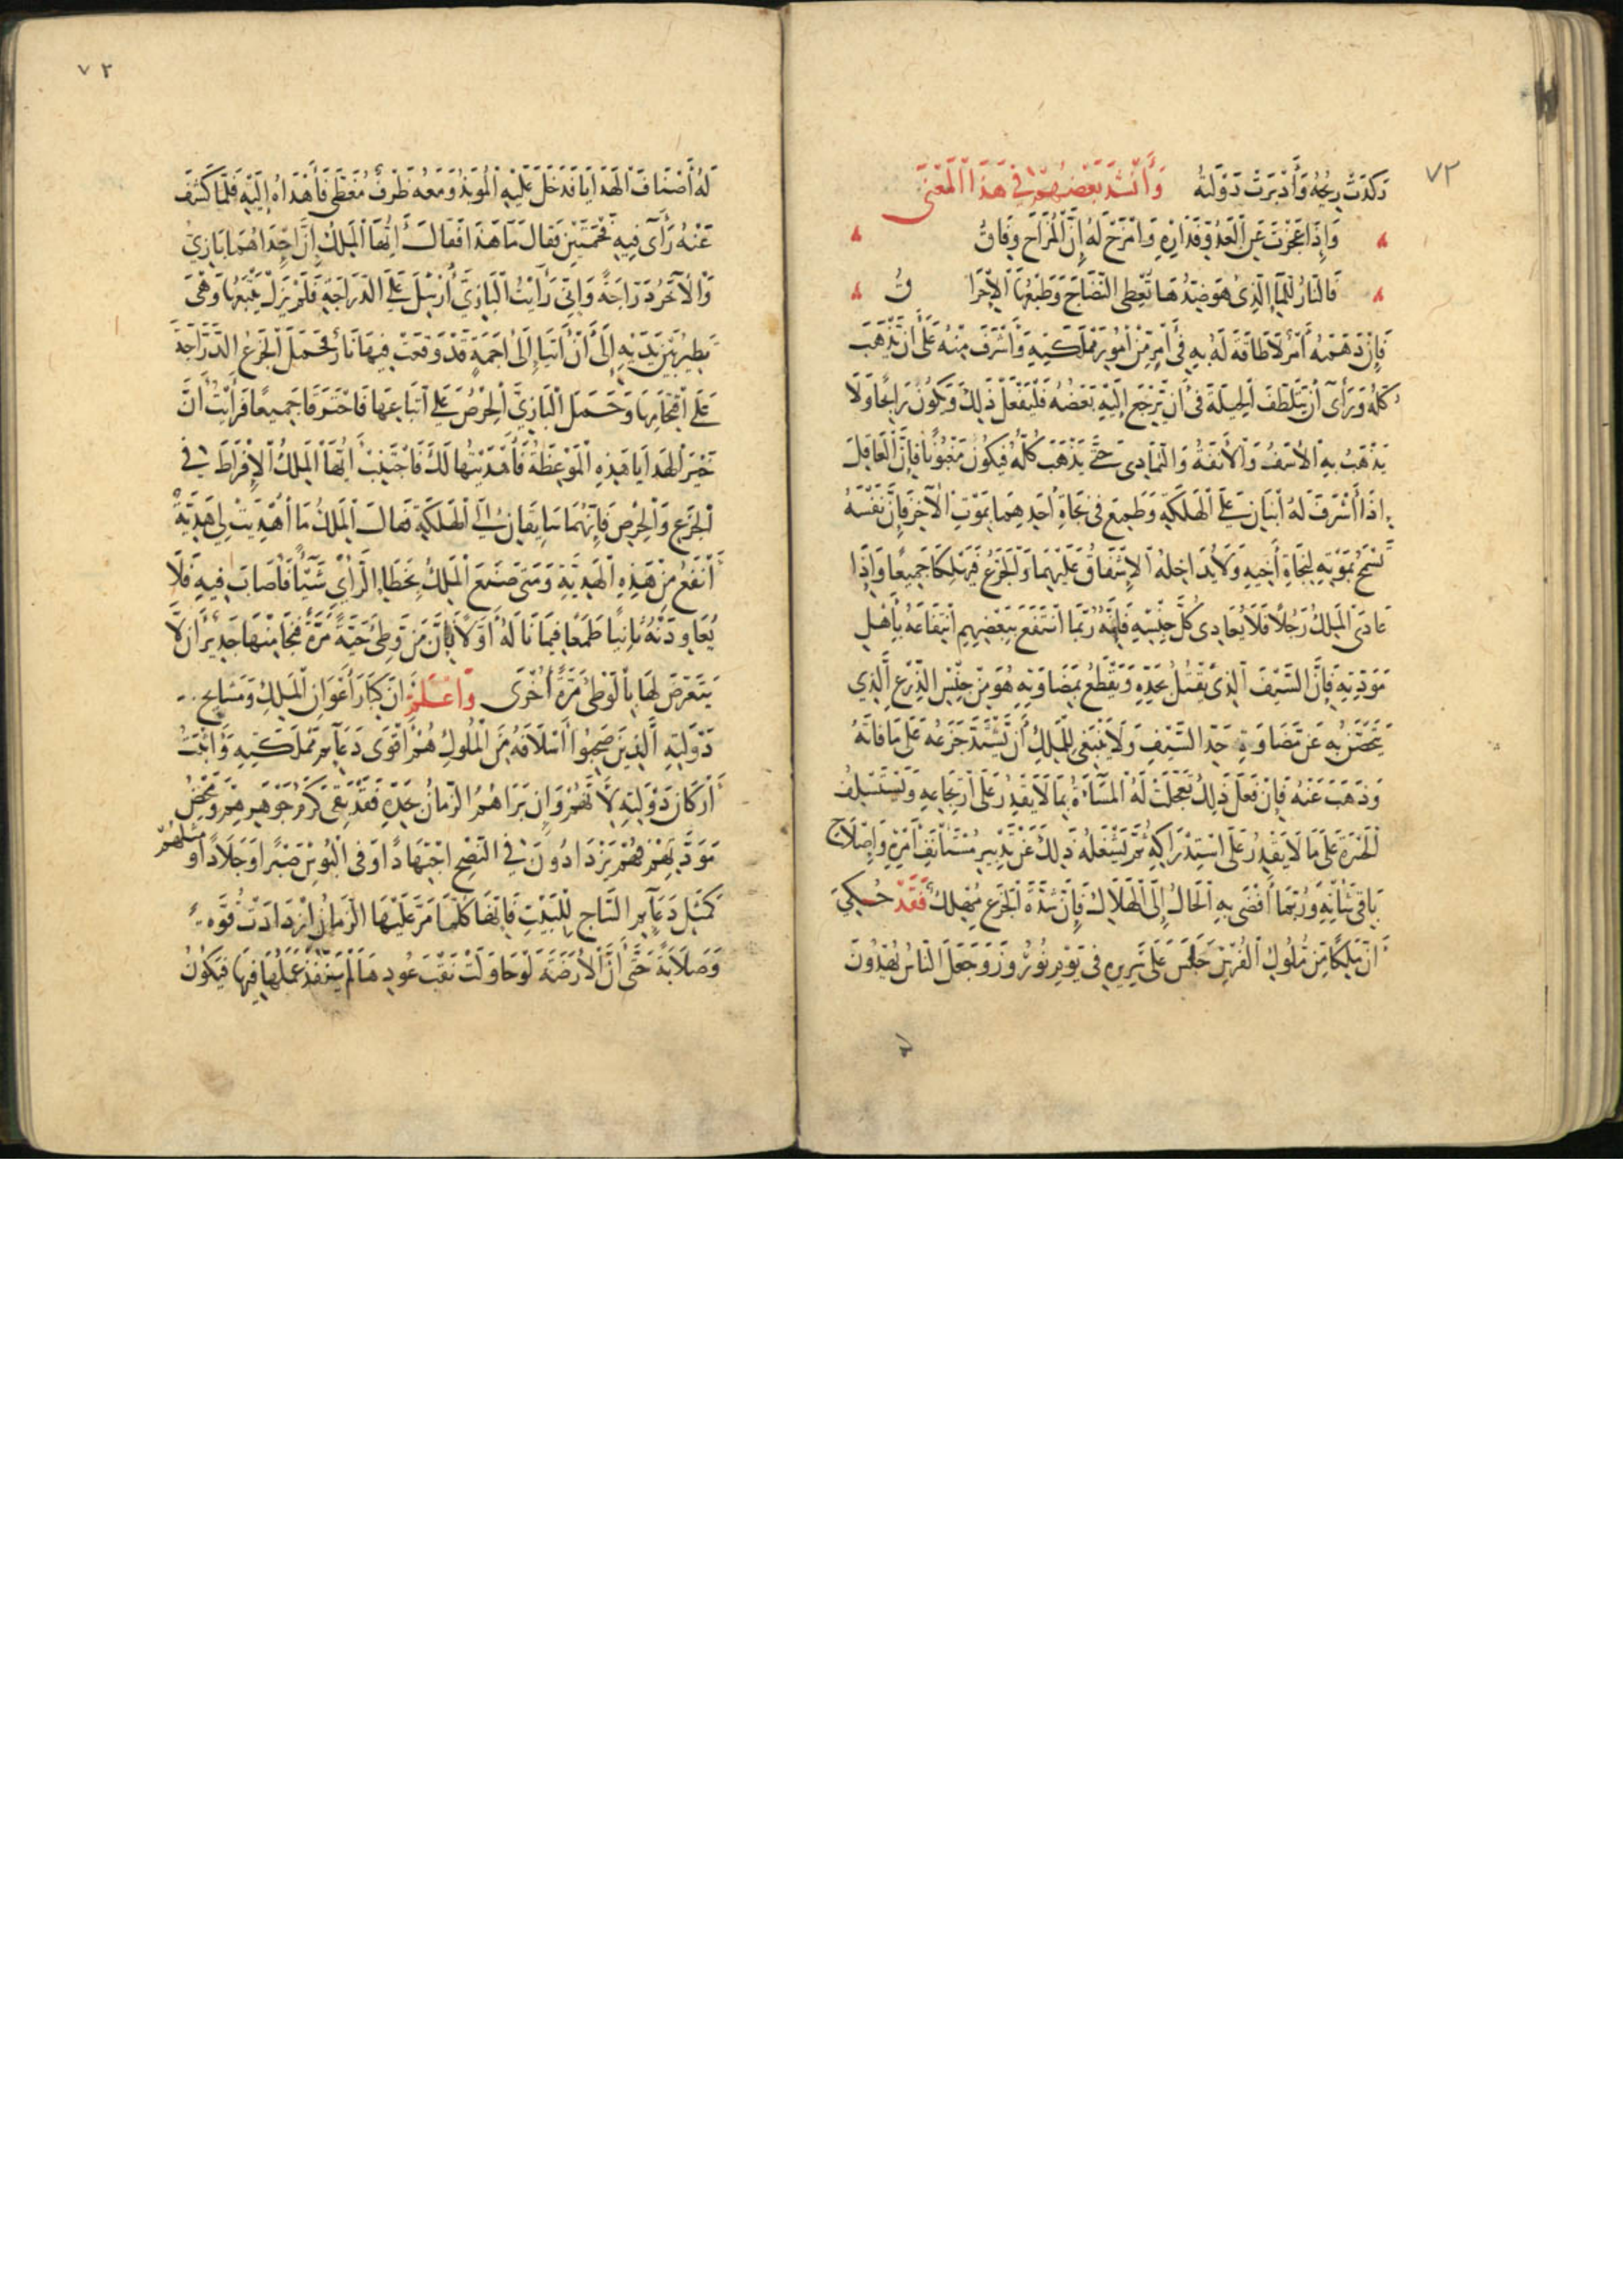 ٧٢
رَكَدَتْ رِيحُهُ وَأَدْبَرَتْ دَوْلَتُهُ وَأَنْشَدَ بَعْضُهُمْ فِي هَذَا الْمَعْنَى
وَإِذَا عَجَزْتَ عَنِ الْعَدُوِّ فَدَارِهِ وَامْزَحْ لَهُ إِنَّ الْمُزَاحَ وِفَاقُ
فَالنَّارُ لِلْمَاءِ الَّذِي هُوَ ضِدُّهَا تُعْطِي النِّضَاجَ وَطَبْعُهَا الْإِحْرَا قُ
فَإِنْ دَهَمَهُ أَمْرٌ لَا طَاقَةَ لَهُ بِهِ فِي أَمْرٍ مِنْ أُمُورِ مَمْلَكَتِهِ وَأَشْرَفَ مِنْهُ عَلَى أَنْ تَذْهَبَ
كُلُّهُ وَرَأَى أَنْ يَتَلَطَّفَ الْحِيلَةَ فِي أَنْ يَرْجِعَ إِلَيْهِ بَعْضُهُ فَلْيَفْعَلْ ذَلِكَ وَيَكُونُ رَابِحًا وَلَا
يَذْهَبُ بِهِ الْأَسَفُ وَالْأَنَفَةُ وَالتَّمَادِي حَتَّى يَذْهَبَ كُلُّهُ فَيَكُونُ مَغْبُونًا فَإِنَّ الْعَاقِلَ
إِذَا أَشْرَفَ لَهُ ابْنَانِ عَلَى الْهَلَكَةِ وَطَمِعَ فِي نَجَاةِ أَحَدِهِمَا بِمَوْتِ الْآخَرِ فَإِنَّ نَفْسَهُ
تَسْمَحُ بِمَوْتِهِ لِنَجَاةِ أَخِيهِ وَلَا يُدَاخِلُهُ الْإِشْفَاقُ عَلَيْهِمَا وَالْجَزَعُ فَيَهْلِكَا جَمِيعًا وَإِذَا
عَادَى الْمَلِكُ رَجُلًا فَلَا يُعَادِي كُلَّ جِنْسِهِ فَإِنَّهُ رُبَّمَا انْتَفَعَ بِبَعْضِهِمْ انْتِفَاعَهُ بِأَهْلِ
مَوَدَّتِهِ فَإِنَّ السَّيْفَ الَّذِي يَقْتُلُ بِحَدِّهِ وَيَقْطَعُ بِمَضَاوَتِهِ هُوَ مِنْ جِنْسِ الدِّرْعِ الَّذِي
يُحَصَّنُ بِهِ عَنْ مَضَاوَةِ حَدِّ السَّيْفِ وَلَا يَنْبَغِي لِلْمَلِكِ أَنْ يَشْتَدَّ جَزَعُهُ عَلَى مَا فَاتَهُ
وَذَهَبَ عَنْهُ فَإِنْ فَعَلَ ذَلِكَ تَعَجَّلَتْ لَهُ الْمَسَاءَةُ بِمَا لَا يَقْدِرُ عَلَى ارْتِجَاعِهِ وَيَسْتَسْلِفُ
الْحَسْرَةَ عَلَى مَا لَا يَقْدِرُ عَلَى اسْتِدْرَاكِهِ ثُمَّ يَشْغَلُهُ ذَلِكَ عَنْ تَدْبِيرِ مُسْتَأْنَفِ أَمْرِهِ وَإِصْلَاحِ
بَاقِي شَأْنِهِ وَرُبَّمَا أَفْضَى بِهِ الْحَالُ إِلَى الْهَلَاكِ فَإِنَّ شِدَّةَ الْجَزَعِ مُهْلِكٌ فَقَدْ حُكِيَ
أَنَّ مَلِكًا مِنْ مُلُوكِ الْفُرْسِ جَلَسَ عَلَى سَرِيرِهِ فِي يَوْمِ نُورُوزَ وَجَعَلَ النَّاسُ يُهْدُونَ
٧٢
لَهُ أَصْنَافَ الْهَدَايَا فَدَخَلَ عَلَيْهِ الْمُوبَذُ وَمَعَهُ ظَرْفٌ مُغَطًّى فَأَهْدَاهُ إِلَيْهِ فَلَمَّا كَشَفَ
عَنْهُ رَأَى فِيهِ فَحْمَتَيْنِ فَقَالَ مَا هَذَا فَقَالَ أَيُّهَا الْمَلِكُ إِنَّ إِحْدَاهُمَا بَازِيٌّ
وَالْآخَرُ دُرَّاجَةٌ وَإِنِّي رَأَيْتُ الْبَازِيَّ أُرْسِلَ عَلَى الدُّرَّاجَةِ فَلَمْ يَزَلْ يَتْبَعُهَا وَهْيَ
تَطِيرُ بَيْنَ يَدَيْهِ إِلَى أَنْ أَتَيَا إِلَى أَجَمَةٍ قَدْ وَقَعَتْ فِيهَا نَارٌ فَحَمَلَ الْجَزَعُ الدُّرَّاجَةَ
عَلَى اقْتِحَامِهَا وَحَمَلَ الْبَازِيَّ الْحِرْصُ عَلَى اتِّبَاعِهَا فَاحْتَرَقَا جَمِيعًا فَرَأَيْتُ أَنَّ
خَيْرَ الْهَدَايَا هَذِهِ الْمَوْعِظَةُ فَأَهْدَيْتُهَا لَكَ فَاجْتَنِبْ أَيُّهَا الْمَلِكُ الْإِفْرَاطَ فِي
الْجَزَعِ وَالْحِرْصِ فَإِنَّهُمَا سَايِقَانِ إِلَى الْهَلَكَةِ فَقَالَ الْمَلِكُ مَا أُهْدِيَتْ لِي هَدِيَّةٌ
أَنْفَعُ مِنْ هَذِهِ الْهَدِيَّةِ وَمَتَى صَنَعَ الْمَلِكُ بِخَطَإِ الرَّأْيِ شَيْئًا فَأَصَابَ فِيهِ فَلَا
يُعَاوِدَنَّهُ ثَانِيًا طَمَعًا فِيمَا نَالَهُ أَوَّلًا فَإِنَّ مَنْ وَطِئَ حَيَّةً مَرَّةً فَنَجَا مِنْهَا جَدِيرٌ أَنْ لَا
يَتَعَرَّضَ لَهَا بِالْوَطْئِ مَرَّةً أُخْرَى وَاعْلَمْ أَنَّ كِبَارَ أَعْوَانِ الْمَلِكِ وَمَشَايِخَ
دَوْلَتِهِ الَّذِينَ صَحِبُوا أَسْلَافَهُ مِنَ الْمُلُوكِ هُمْ أَقْوَى دَعَائِمِ مَمْلَكَتِهِ وَأَثْبَتُ
أَرْكَانِ دَوْلَتِهِ لِأَنَّهُمْ وَإِنْ بَرَاهُمُ الزَّمَانُ بِحَدِّهِ فَقَدْ بَقِيَ كَرَمُ جَوْهَرِهِمْ وَمَحْضُ
مَوَدَّتِهِمْ فَهُمْ يَزْدَادُونَ فِي النُّصْحِ اجْتِهَادًا وَفِي الْبُؤْسِ صَبْرًا وَجِلَادًا وَمَثَلُهُمْ
كَمَثَلِ دَعَائِمِ السَّاجِ لِلْبَيْتِ فَإِنَّهَا كُلَّمَا مَرَّ عَلَيْهَا الزَّمَانُ ازْدَادَتْ قُوَّةً
وَصَلَابَةً حَتَّى أَنَّ الْأَرَضَةَ لَوْ حَاوَلَتْ نَقْبَ عُودِهَا لَمْ يَنْفُذْ عَمَلُهَا فِيهَا فَيَكُونُ